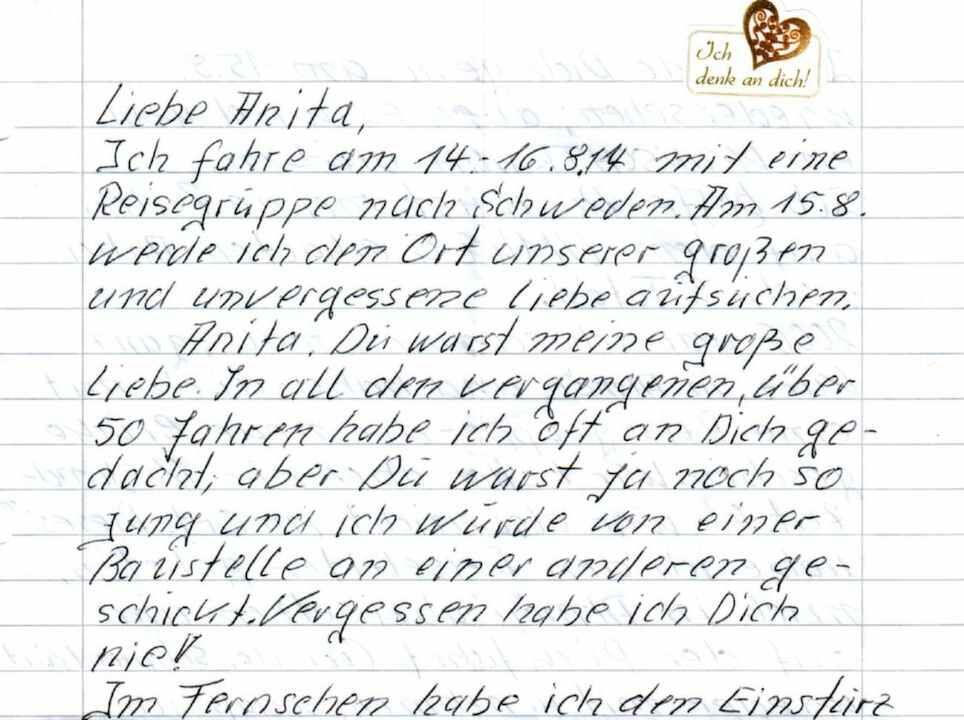 Ich
denk an dich!
Liebe Anita,
Ich fahre am 14.-16.8.14 mit eine
Reisegruppe nach Schweden. Am 15.8.
werde ich den Ort unserer großen
und unvergessene Liebe aufsuchen.
Anita. Du warst meine große
Liebe. In all den vergangenen, über
50 Jahren habe ich oft an Dich ge-
dacht, aber Du warst ja noch so
jung und ich wurde von einer
Baustelle an einer anderen ge-
schickt. Vergessen habe ich Dich
nie!
Im Fernsehen habe ich den Einsturz